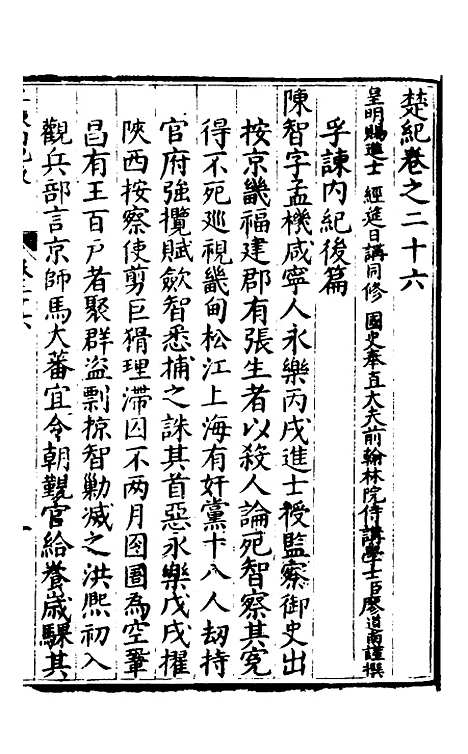 楚紀卷之二十六
皇明賜進士 經筵日講同修 國史奉直大夫前翰林院侍講學士臣廖道南謹撰
孚諫內紀後篇
陳智字孟機咸寧人永樂丙戌進士授監察御史出
按京畿福建郡有張生者以殺人論死智察其寃
得不死巡視畿甸松江上海有奸黨十八人劫持
官府強攬賦歛智悉捕之誅其首惡永樂戊戌擢
陝西按察使剪巨猾理滯囚不两月囹圄為空鞏
昌有王百戶者聚群盗剽掠智勦滅之洪熈初入
觀兵部言京師馬大蕃宜令朝覲官給養歲騍其